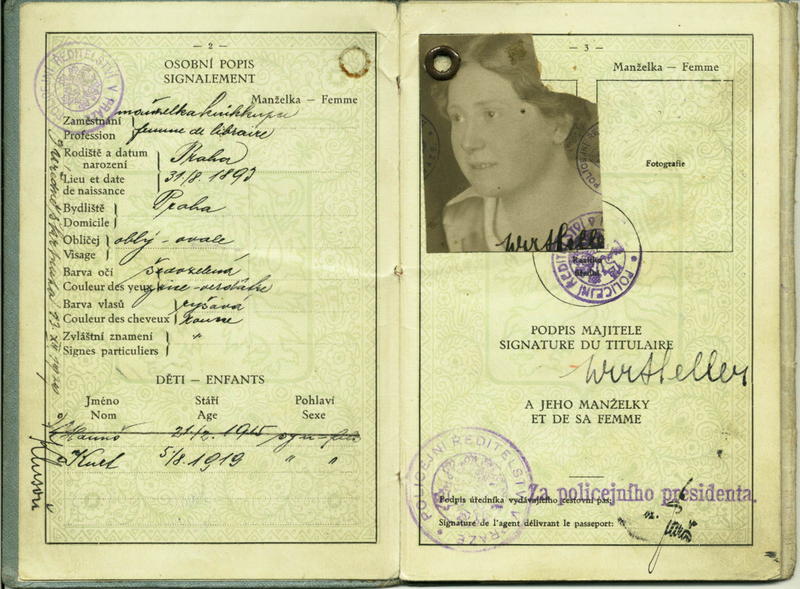 — 2 —
OSOBNÍ POPIS
SIGNALEMENT
Manželka — Femme
Zaměstnání
manželka knihkupce
Profession
femme de libraire
Rodiště a datum narození
Praha
Lieu et date de naissance
31/8. 1893
Bydliště
Domicile
Praha
Obličej
Visage
oblý - ovale
Barva očí
šedozelená
Couleur des yeux
Barva vlasů
ryšavá
Couleur des cheveux
Zvláštní znamení
"
Signes particuliers
DĚTI — ENFANTS
Jméno Stáří Pohlaví
Nom Age Sexe
Hanuš 21/2. 1915 syn - fils
Kurt 5/8. 1919 " "
POLICEJNÍ ŘEDITELSTVÍ V PRAZE
— 3 —
Manželka — Femme
Fotografie
Razítko
POLICEJNÍ ŘEDITELSTVÍ
PODPIS MAJITELE
SIGNATURE DU TITULAIRE
A JEHO MANŽELKY
ET DE SA FEMME
POLICEJNÍ ŘEDITELSTVÍ V PRAZE
Za policejního presidenta.
Podpis úředníka vydávajícího cestovní pas:
Signature de l'agent délivrant le passeport: